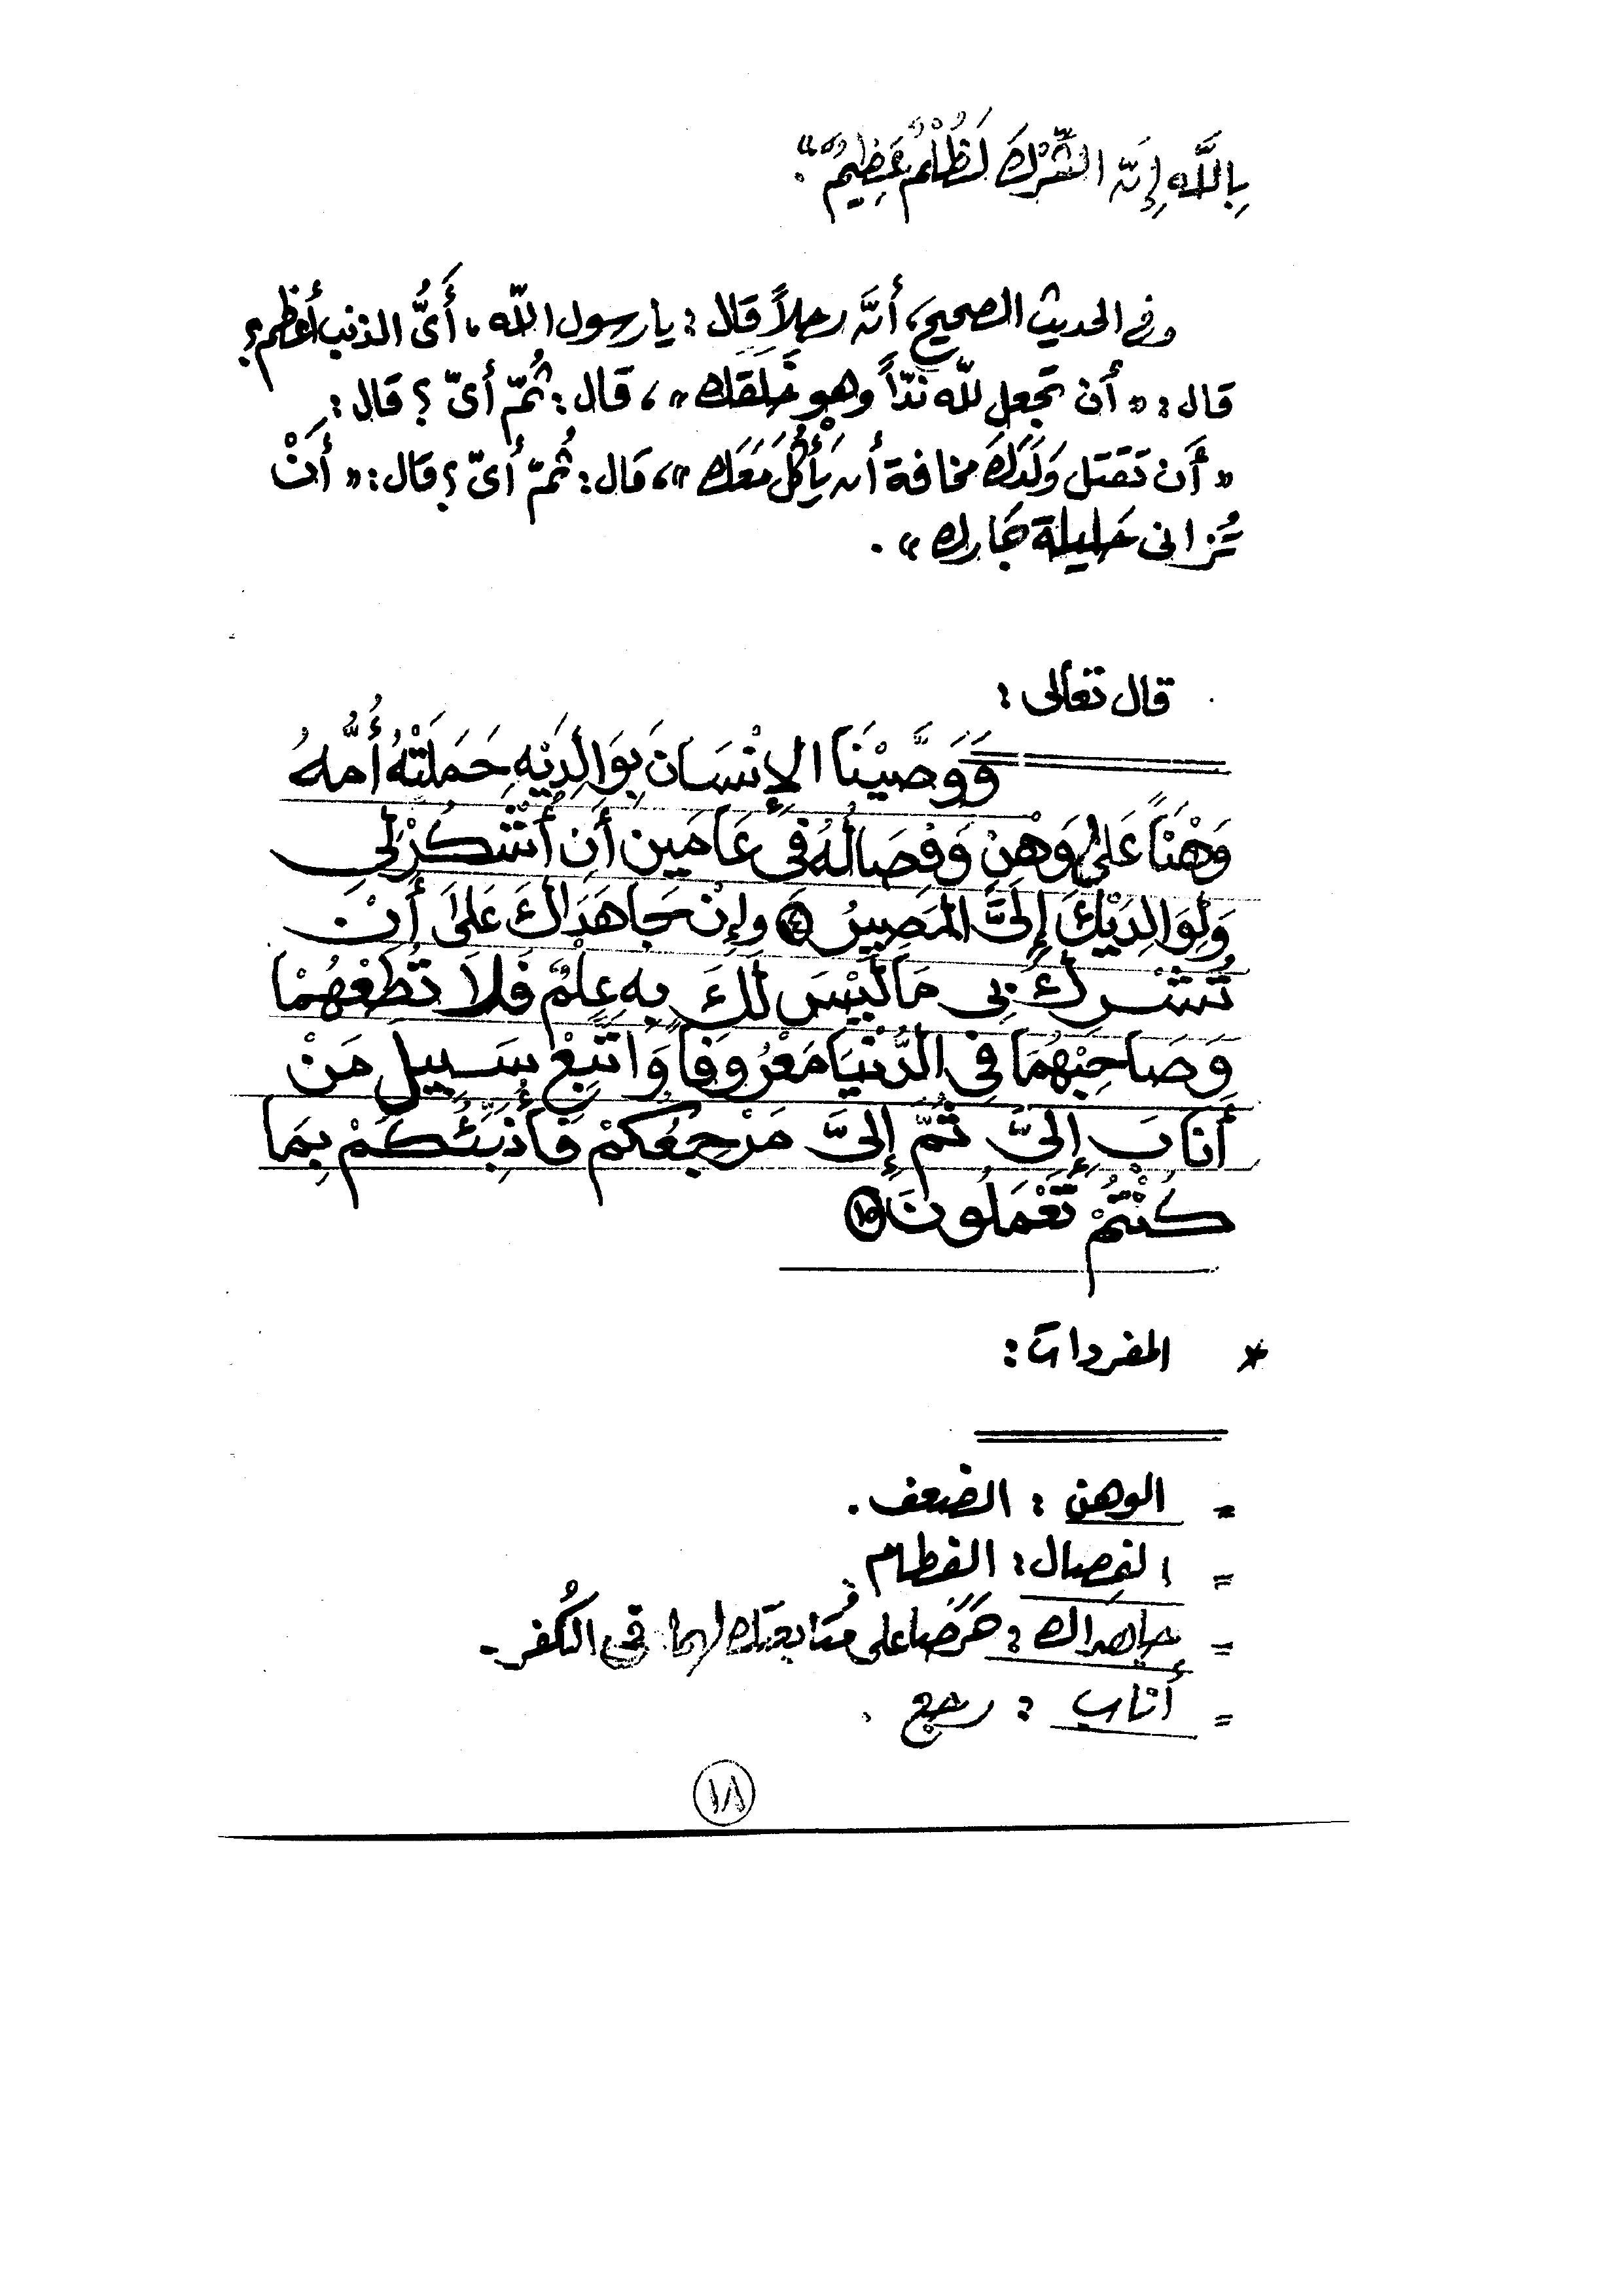 بِاللَّهِ إِنَّ الشِّرْكَ لَظُلْمٌ عَظِيمٌ".
وفى الحديث الصحيح، أنَّ رجلاً قال : يا رسول اللّه ، أَىُّ الذنب أعظم؟
قال : « أن تجعل للّه نِدّاً وهو خَلقك » ، قال : ثُمّ أىّ ؟ قال :
« أَن تقتل وَلَدَكَ مخافة أن يَأْكُلَ مَعَك » ، قال : ثُمّ أىّ ؟ قال : « أَنْ
تُزانى حَليلة جَارك » .
قال تعالى :
وَوَصَّيْنَا الإِنْسَانَ بِوَالِدَيْهِ حَمَلَتْهُ أُمُّهُ
وَهْنَاً عَلى وَهْنٍ وَفِصَالُهُ فى عَامَين أَنِ أُشْكُرْ لِي
وَلِوَالِدَيْكَ إِلَىَّ المَصِيرُ ١٤ وإِنْ جَاهَدَاكَ عَلىَ أَنْ
تُشْرِكَ بِى مَا لَيْسَ لَكَ بِهِ عِلْمٌ فَلاَ تُطِعْهُمْا
وَصَاحِبْهُمَا فِى الدُّنْيَا مَعْرُوفَاً وَاتَّبِعْ سَبِيلَ مَنْ
أَنَابَ إِلىَّ ثُمَّ إِلىَّ مَرْجِعُكُمْ فَأُنَبِّئُكُمْ بِمَا
كُنْتُمْ تَعْمَلُونَ ١٥
* المفردات :
= الوهن : الضعف .
= الفِصال : الفطام .
= جاهداك : حَرَصَا على مُتابعتك لهما فى الكُفر -
= أناب : رجع .
١٨